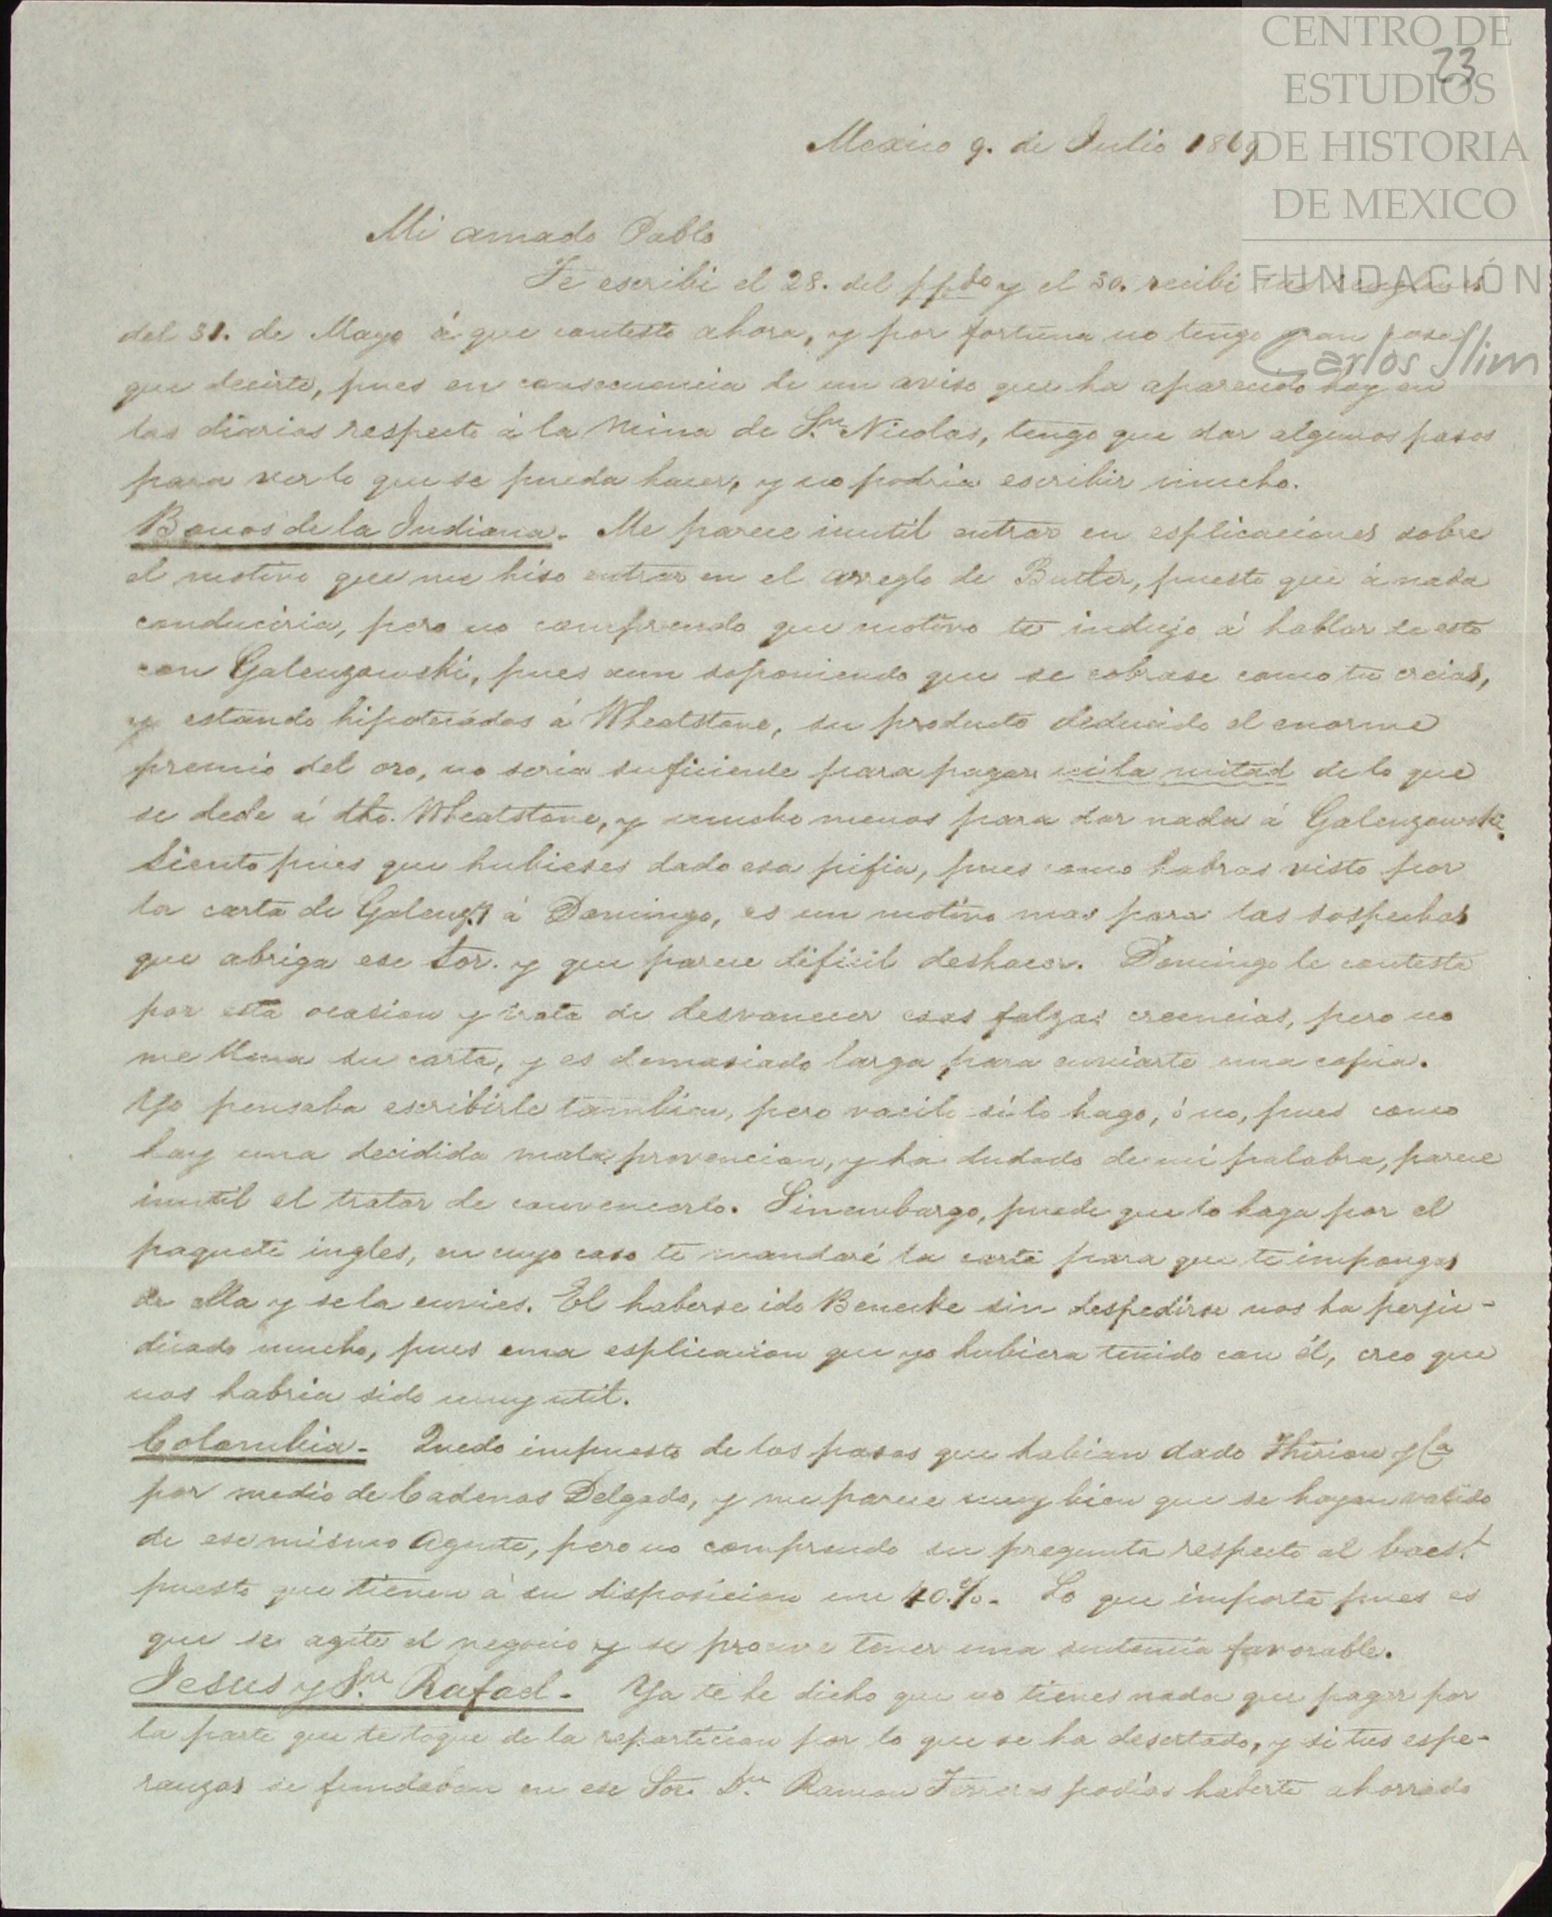 CENTRO DE
ESTUDIOS
DE HISTORIA
DE MEXICO
FUNDACIÓN
Carlos Slim
23
Mexico 9. de Julio 1869
Mi amado Pablo
Te escribi el 28. del ppdo y el 30. recibi
del 31. de Mayo á que contesto ahora, y por fortuna no tengo gran cosa
que decirte, pues en consecuencia de un aviso que ha aparecido hoy en
los diarios respecto á la Mina de Sn. Nicolas, tengo que dar algunos pasos
para ver lo que se pueda hacer, y no podria escribir mucho.
Bonos de la Indiana. Me parece inutil entrar en esplicaciones sobre
el motivo que me hiso entrar en el arreglo de Butler, puesto que á nada
conduciria, pero no comprendo que motivo te indujo á hablar de esto
con Galenzowski, pues aun soponiendo que se cobrase como tu creias,
y estando hipotecados á Wheatstone, su producto deducido el enorme
premio del oro, no seria suficiente para pagar ni la mitad de lo que
se debe á dho. Wheatstone, y mucho menos para dar nada á Galenzowski.
Siento pues que hubieses dado esa pifia, pues como habras visto por
la carta de á Domingo, es un motivo mas para las sospechas
que abriga ese Sor. y que parece dificil deshacer. Domingo le contesta
por esta ocasion y trata de desvanecer esas falzas creencias, pero no
me llena su carta, y es demasiado larga para enviarte una copia.
Yo pensaba escribirle tambien, pero vacilo si lo hago, ó no, pues como
hay una decidida mala prevencion, y ha dudado de mi palabra, parece
inutil el tratar de convencerlo. Sinembargo, puede que lo haga por el
paquete ingles, en cuyo caso te mandaré la carta para que te impongas
de ella y se la envies. El haberse ido Benecke sin despedirse nos ha perju-
dicado mucho, pues una esplicacion que yo hubiera tenido con él, creo que
nos habria sido muy util.
Colombia. Quedo impuesto de los pasos que habian dado Thirion y Ca
por medio de Cadenas Delgado, y me parece muy bien que se hayan valido
de ese mismo Agente, pero no comprendo su pregunta respecto al
puesto que tienen á su disposicion un 40.%. Lo que importa pues es
que se agite el negocio y se procure tener una sentencia favorable.
Jesus y Sn. Rafael. Ya te he dicho que no tienes nada que pagar por
la parte que te toque de la reparticion por lo que se ha desertado, y si tus espe-
ranzas se fundaban en ese Sor. Dn. Ramon podias haberte ahorrado